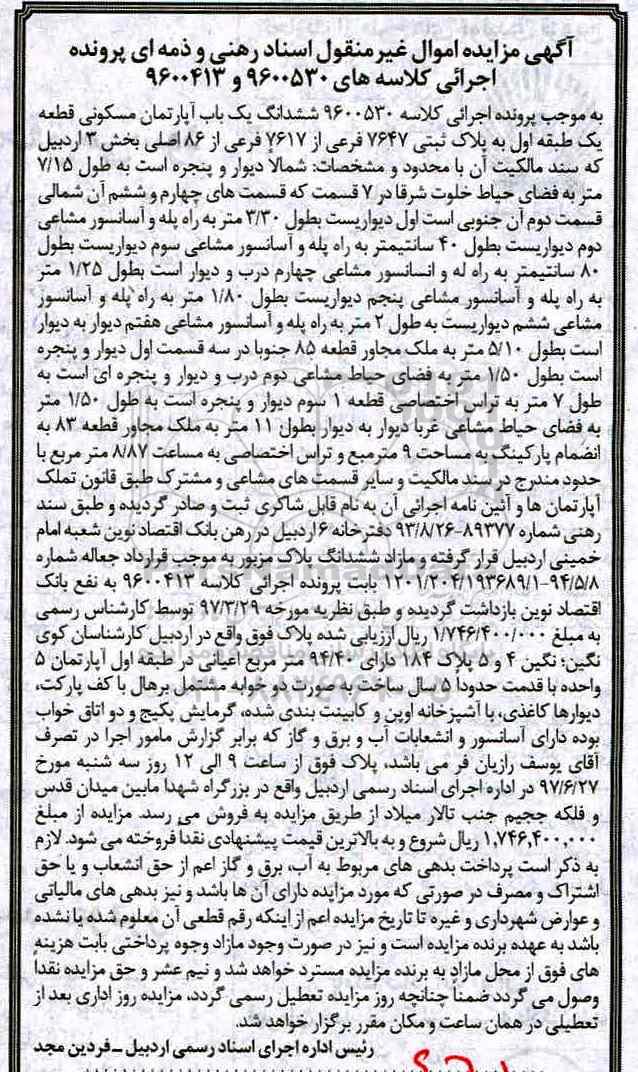 آگهی مزایده اموال غیر منقول اسناد رهنی و ذمه ای پرونده
اجرائی کلاسه های ۹۶۰۰۵۳۰ و ۹۶۰۰۴۱۳
به موجب پرونده اجرائی کلاسه ۹۶۰۰۵۳۰ ششدانگ یک باب آپارتمان مسکونی قطعه
یک طبقه اول به پلاک ثبتی ۷۶۴۷ فرعی از ۷۶۱۷ فرعی از ۸۶ اصلی بخش ۳ اردبیل
که سند مالکیت آن با محدود و مشخصات: شمالاً دیوار و پنجره است به طول ۷/۱۵
متر به فضای حیاط خلوت شرقا در ۷ قسمت که قسمت های چهارم و ششم آن شمالی
قسمت دوم آن جنوبی است اول دیواریست بطول ۳/۳۰ متر به راه پله و آسانسور مشاعی
دوم دیواریست بطول ۴۰ سانتیمتر به راه پله و آسانسور مشاعی سوم دیواریست بطول
۸۰ سانتیمتر به راه له و انسانسور مشاعی چهارم درب و دیوار است بطول ۱/۲۵ متر
به راه پله و آسانسور مشاعی پنجم دیواریست بطول ۱/۸۰ متر به راه پله و آسانسور
مشاعی ششم دیواریست به طول ۲ متر به راه پله و آسانسور مشاعی هفتم دیوار به دیوار
است بطول ۵/۱۰ متر به ملک مجاور قطعه ۸۵ جنوبا در سه قسمت اول دیوار و پنجره
است بطول ۱/۵۰ متر به فضای حیاط مشاعی دوم درب و دیوار و پنجره ای است به
طول ۷ متر به تراس اختصاصی قطعه ۱ سوم دیوار و پنجره است به طول ۱/۵۰ متر
به فضای حیاط مشاعی غربا دیوار به دیوار بطول ۱۱ متر به ملک مجاور قطعه ۸۳ به
انضمام پارکینگ به مساحت ۹ مترمبع و تراس اختصاصی به مساعت ۸/۸۷ متر مربع با
حدود مندرج در سند مالکیت و سایر قسمت های مشاعی و مشترک طبق قانون تملک
آپارتمان ها و آئین نامه اجرائی آن به نام قابل شاکری ثبت و صادر گردیده و طبق سند
رهنی شماره ۸۹۳۷۷-۹۳/۸/۲۶ دفترخانه ۶ اردبیل در رهن بانک اقتصاد نوین شعبه امام
خمینی اردبیل قرار گرفته و مازاد ششدانگ پلاک مزبور به موجب قرارداد جعاله شماره
۱۲۰۱/۲۰۴/۱۹۳۶۸۹/۱-۹۴/۵/۸ بابت پرونده اجرائی کلاسه ۹۶۰۰۴۱۳ به نفع بانک
اقتصاد نوین بازداشت گردیده و طبق نظریه مورخه ۹۷/۳/۲۹ توسط کارشناس رسمی
به مبلغ ۱/۷۴۶/۴۰۰/۰۰۰ ریال ارزیابی شده پلاک فوق واقع در اردبیل کارشناسان کوی
نگین؛ نگین ۴ و ۵ پلاک ۱۸۴ دارای ۹۴/۴۰ متر مربع اعیانی در طبقه اول آپارتمان ۵
واحده با قدمت حدودا ۵ سال ساخت به صورت دو خوابه مشتمل برهال با کف پارکت،
دیوارها کاغذی، با آشپزخانه اوپن و کابینت بندی شده، گرمایش پکیج و دو اتاق خواب
بوده دارای آسانسور و انشعابات آب و برق و گاز که برابر گزارش مامور اجرا در تصرف
آقای یوسف رازیان فر می باشد، پلاک فوق از ساعت ۹ الی ۱۲ روز سه شنبه مورخ
۹۷/۶/۲۷ در اداره اجرای اسناد رسمی اردبیل واقع در بزرگراه شهدا مابین میدان قدس
و فلکه ججیم جنب تالار میلاد از طریق مزایده به فروش می رسد. مزایده از مبلغ
۱,۷۴۶,۴۰۰,۰۰۰ ریال شروع و به بالاترین قیمت پیشنهادی نقداً فروخته می شود. لازم
به ذکر است پرداخت بدهی های مربوط به آب، برق و گاز اعم از حق انشعاب و یا حق
اشتراک و مصرف در صورتی که مورد مزایده دارای آن ها باشد و نیز بدهی های مالیاتی
و عوارض شهرداری و غیره تا تاریخ مزایده اعم از اینکه رقم قطعی آن معلوم شده یا نشده
باشد به عهده برنده مزایده است و نیز در صورت وجود مازاد وجوه پرداختی بابت هزینه
های فوق از محل مازاد به برنده مزایده مسترد خواهد شد و نیم عشر و حق مزایده نقداً
وصول می گردد ضمناً چنانچه روز مزایده تعطیل رسمی گردد، مزایده روز اداری بعد از
تعطیلی در همان ساعت و مکان مقرر برگزار خواهد شد.
رئیس اداره اجرای اسناد رسمی اردبیل ــ فردین مجد